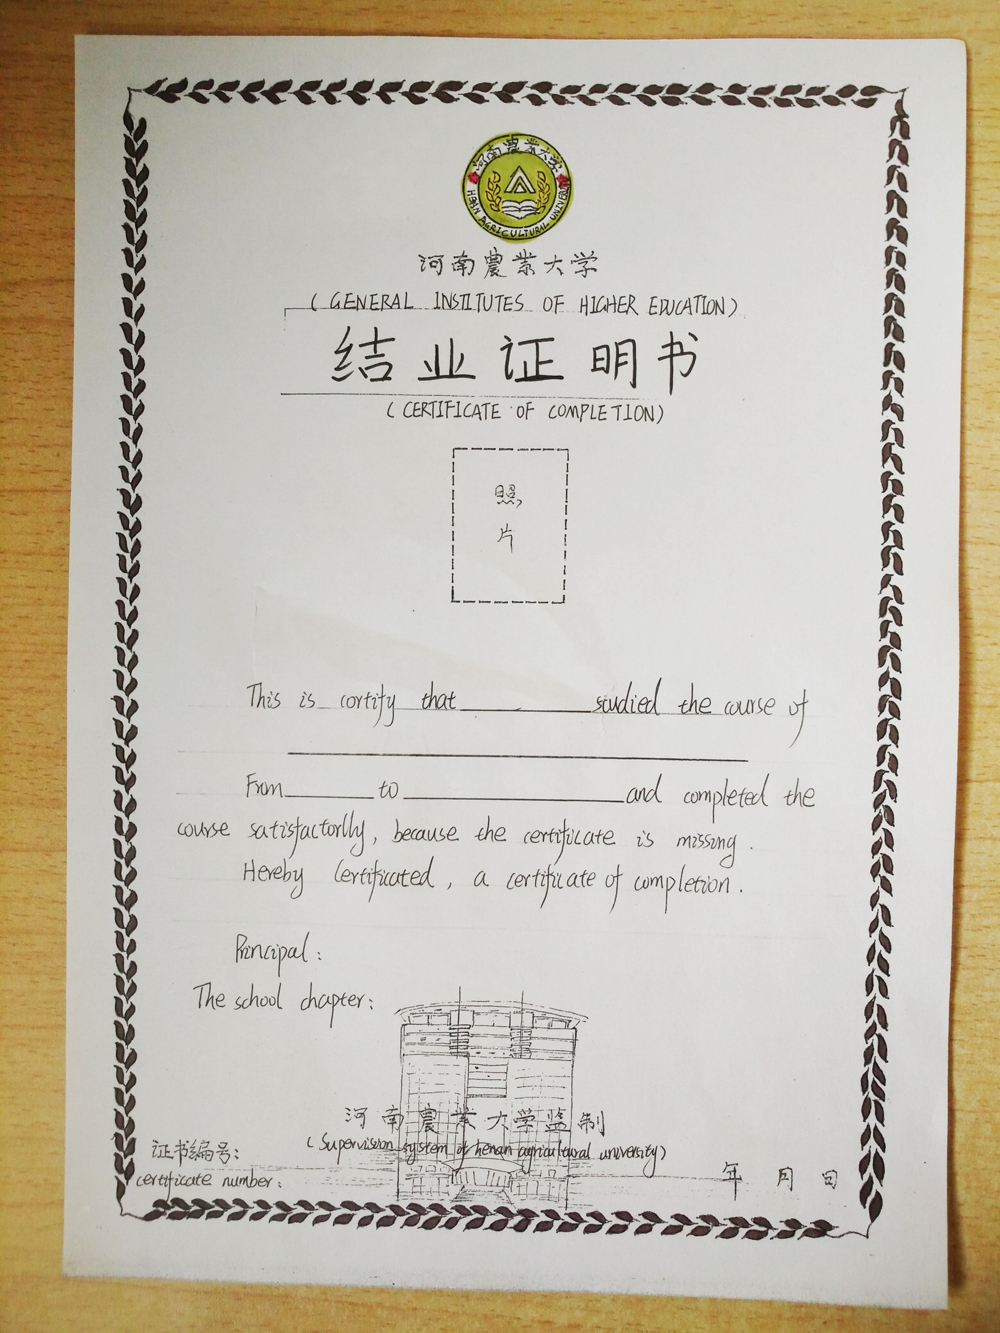 河南農業大学
HENAN AGRICULTURAL UNIVERSITY
河南農業大学
(GENERAL INSTITUTES OF HIGHER EDUCATION)
结业证明书
(CERTIFICATE OF COMPLETION)
照
片
This is cortify that studied the course of
From to and completed the
course satisfactorlly, because the certificate is missing.
Hereby Certificated, a certificate of completion.
Principal:
The school chapter:
河南農業大学监制
(Supervision system of henan agricultural university)
证书编号:
certificate number:
年 月 日